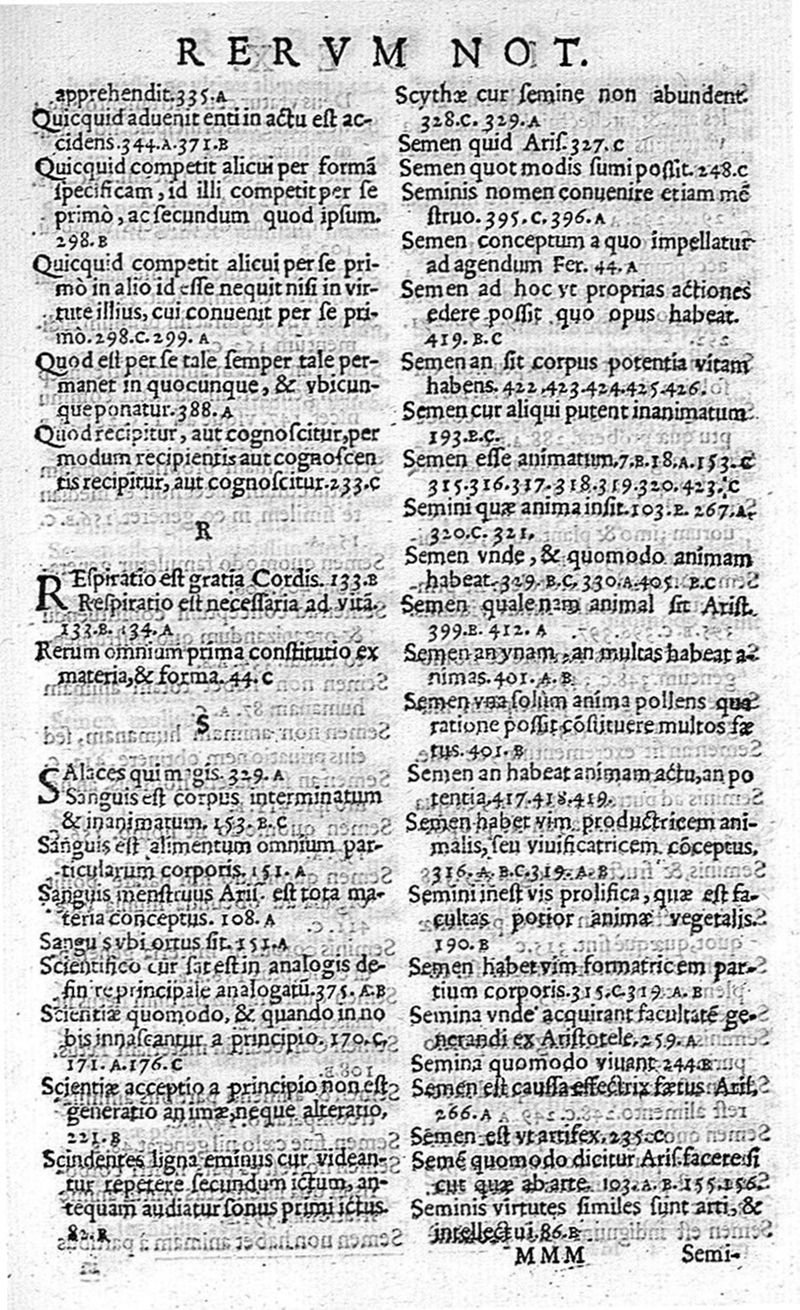 RERVM NOT.
apprehendit.335.A
Quicquid aduenit enti in actu est ac-
cidens.344.A.371.B
Quicquid competit alicui per formã
specificam, id illi competit per se
primò, ac secundum quod ipsum.
298.B
Quicquid competit alicui per se pri-
mò in alio id esse nequit nisi in vir-
tute illius, cui conuenit per se pri-
mò.298.C.299.A
Quod est per se tale semper tale per-
manet in quocunque, & vbicun-
que ponatur.388.A
Quod recipitur, aut cognoscitur, per
modum recipientis aut cognoscen
tis recipitur, aut cognoscitur.233.C
R
REspiratio est gratia Cordis. 133.B
Respiratio est necessaria ad vitã.
133.B. 134.A
Rerum omnium prima constitutio ex
materia, & forma. 44.C
S
SAlaces qui magis. 329.A
Sanguis est corpus interminatum
& inanimatum. 153.B.C
Sãguis est alimentum omnium par-
ticularum corporis. 151.A
Sanguis menstruus Aris. est tota ma-
teria conceptus. 108.A
Sanguis vbi ortus sit. 151.A
Scientifico cur sat est in analogis de-
finire principale analogatũ.375.A.B
Scientiæ quomodo, & quando in no
bis innascantur a principio. 170.C,
171.A.176.C
Scientiæ acceptio a principio non est
generatio animæ, neque alteratio,
221.B
Scindentes ligna eminus cur videan-
tur repetere secundum ictum, an-
tequam audiatur sonus primi ictus.
82.B
Scythæ cur semine non abundent.
328.C. 329.A
Semen quid Aris.327.C
Semen quot modis sumi possit.248.C
Seminis nomen conuenire etiam mẽ
struo.395.C.396.A
Semen conceptum a quo impellatur
ad agendum Fer. 44.A
Semen ad hoc vt proprias actiones
edere possit quo opus habeat.
419.B.C
Semen an sit corpus potentia vitam
habens.422.423.424.425.426.
Semen cur aliqui putent inanimatum
193.B.C.
Semen esse animatum.7.B.18.A.153.C
315.316.317.318.319.320.423.C
Semini quæ anima insit.103.B. 267.A.
320.C. 321.
Semen vnde, & quomodo animam
habeat.329.B.C.330.A.405.B.C
Semen qualenam animal sit Arist.
399.B. 412.A
Semen an vnam, an multas habeat a-
nimas.401.A.B
Semen vna solùm anima pollens qua
ratione possit cõstituere multos fæ
tus.401.B
Semen an habeat animam actu, an po
tentia.417.418.419.
Semen habet vim productricem ani-
malis, seu viuificatricem cõceptus.
316.A.B.C.319.A.B
Semini inest vis prolifica, quæ est fa-
cultas potior animæ vegetalis.
190.B
Semen habet vim formatricem par-
tium corporis.315.C.319.A.B
Semina vnde acquirant facultatẽ ge-
nerandi ex Aristotele.259.A
Semina quomodo viuant 244.B
Semen est caussa effectrix fætus Aris.
266.A
Semen est vt artifex.235.C
Semẽ quomodo dicitur Aris.facere si
cut quæ ab arte. 103.A.B.155.156.
Seminis virtutes similes sunt arti, &
intellectui.86.B
MMM Semi-